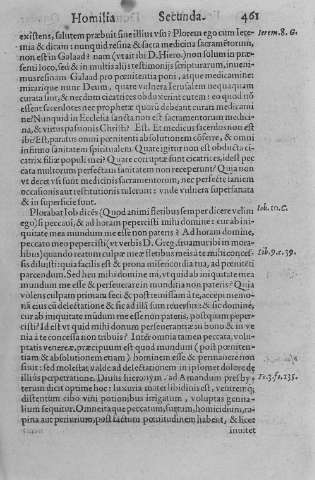 Homilia Secunda. 461
existens, salutem præbuit siue illius vsū? Plorem ego cum Iere-
mia & dicam: nunquid resina & sacra medicina sacramētorum,
non est in Galaad? nam (vt ait ibi D. Hiero.) non solum in præ-
senti loco, sed & in multis aliis testimonijs scripturarum, inueni-
mus resinam Galaad pro pœnitentia poni, atque medicaminet
mirarique nunc Deum, quare vulnera Ierusalem nequaquam
curata sint, & nec dum cicatrices obduxerint cutem: eo quod nō
essent sacerdotes nec prophetæ quorū debeāt curari medicami-
ne? Nunquid in Ecclesia sancta non est sacramentorum medici-
na, & virtus passionis Christi? Est. Et medicus sacerdos non est
ibi? Est, paratus omni pœnitenti absolutionem cōferre, & omni
infirmo sanitatem spiritualem. Quare igitur non est obducta ci-
catrix filiæ populi mei? Quare corruptæ sunt cicatrices, id est pec
cata multorum perfectam sanitatem non receperunt? Quia non
vt decet vsi sunt medicinis sacramentorum, nec perfecte laniem
occasionis aut restitutionis tulerunt: vnde vulnera supersanata
& in superficie sunt.
Plorabat Iob dicēs (Quod animi flentibus semper dicere velim
ego) si peccaui, & ad horam pepercisti mihi domine: cur ab ini-
quitate mea mundum me esse non pateris? Ad horam domine,
peccato meo pepercisti (vt verbis D. Greg. fruamur ibi in mora-
libus) quando reatum culpæ meæ fletibus meis a te mihi conces-
sis diluisti: quia facilis est & prona misericordia tua, ad pœniteti
parcendum. Sed heu mihi domine mi, vt quid ab iniquitate mea
mundum me esse & perseuerare in munditia non pateris? Quia
volens culpam primam feci & post remissam à te, accepi memo-
riā eius cū delectatione & sic ad illā sum reuersus: & sic domine,
cur ab iniquitate mūdum me esse non pateris, postquam peper-
cisti? Id est vt quid mihi donum perseuerantiæ in bono & in ve-
nia à te concessa non tribuis? Inter omnia tamen peccata, volu-
ptatis venereæ, præcipuum est quod mundum (post pœniten-
tiam & absolutionem etiam) hominem esse & permanere non
sinit: sed molestat valde ad delectationem in ipsomet dolore &
illius perpetratione. Diuus hieronym. ad Amandum presby-
terum dicit optime hoc: luxuria mater libidinis est, ventremq;
distentum cibo vini potionibus irrigatum, voluptas genita-
lium sequitur. Omne itaque peccatum, furtum, homicidium, ra-
pina aut periurium, post factum pœnitudinem habent, & licet
inuitet
Ierem. 8. G.
Iob. 10. C.
Lib. 9. c. 39.
To. 3. fo. 135.